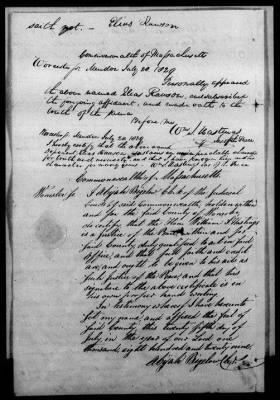 saith not. — Elias Rawson
Commonwealth of Massachusetts
Worcester ss Mendon July 20. 1829
Personally appeared
the above named Elias Rawson, and subscribed
the foregoing affidavit, and made oath to the
truth of the same
Before me
Wm S Hastings
Justice Peace
Worcester ss Mendon July 20 1829
I hereby certify that the above named
Elias Rawson
for truth and
character for many years Wm S Hastings Jus. of the Peace
Commonwealth of Massachusetts
Worcester ss I Abijah Bigelow Clerk of the Judicial
Courts of said Commonwealth, holden within
and for the said County of Worcester
do certify that the Hon. William S Hastings
is a Justice of the Peace within and for
said County duly qualified to act in said
office, and that full faith and credit
are, and ought to be given to his acts as
such Justice of the Peace, and that his
signature to the above certificate is in
his own proper hand writing.
In testimony whereof I have hereunto
put my name, and affixed the seal of
said County, this twenty fifth day of
July, in the year of our Lord one
thousand eight hundred and twenty nine
Abijah Bigelow Clerk